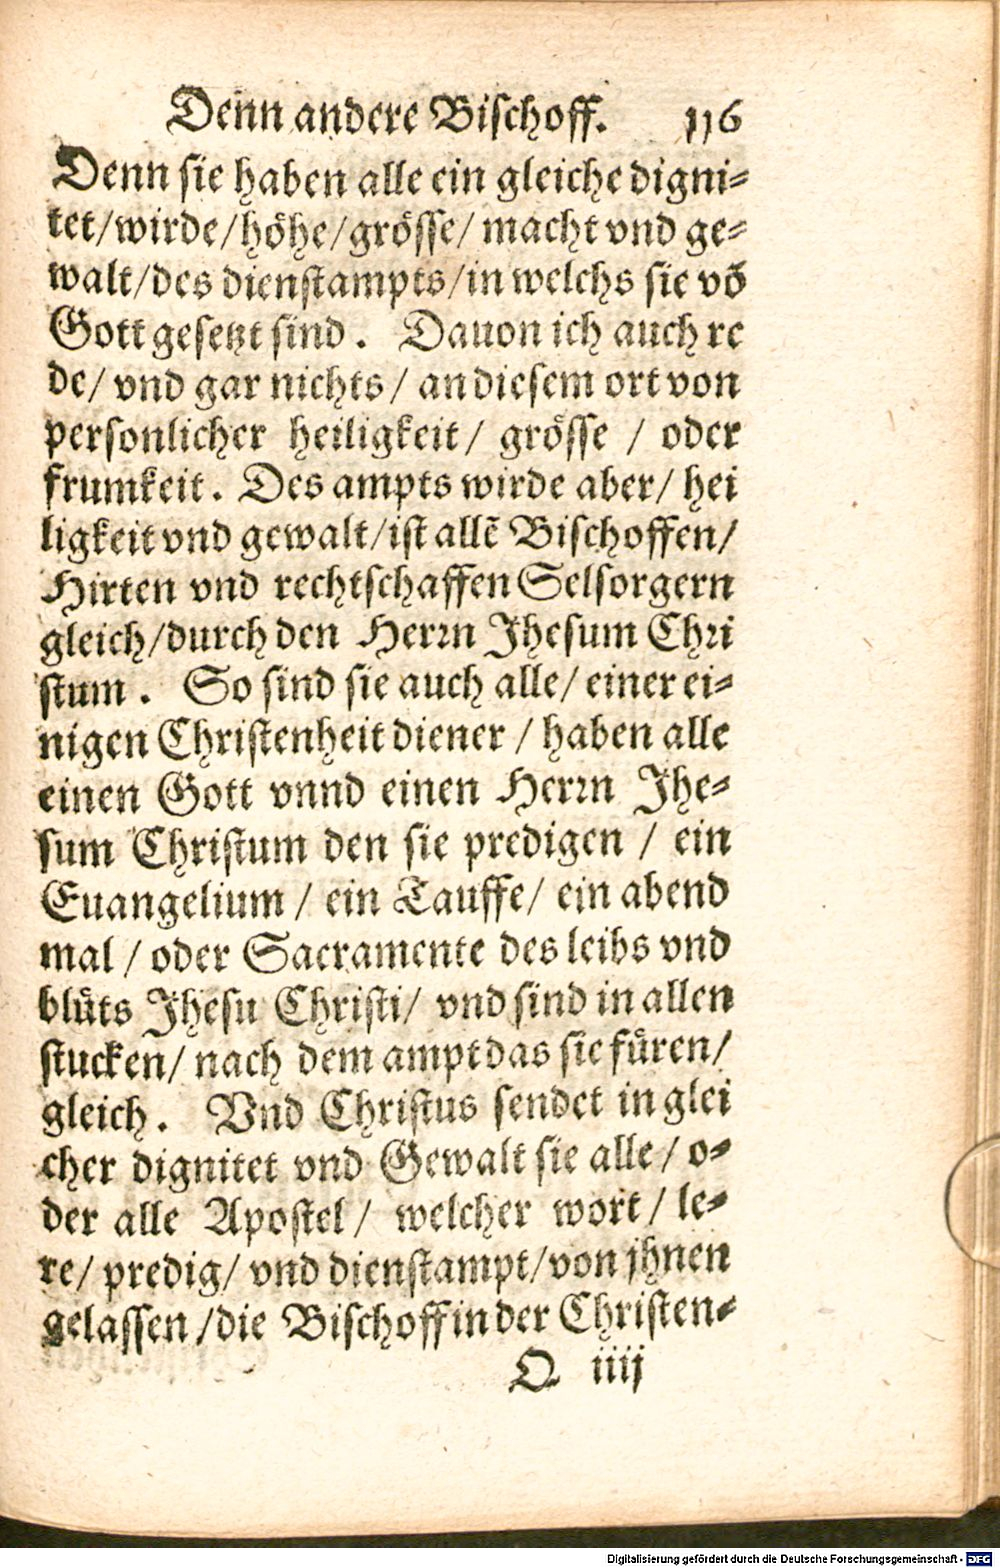 Denn andere Bischoff. 116
Denn sie haben alle ein gleiche digni⸗
tet/wirde/höhe/grösse/ macht vnd ge⸗
walt/des dienstampts/in welchs sie võ
Gott gesetzt sind. Dauon ich auch re
de/ vnd gar nichts/ an diesem ort von
personlicher heiligkeit/ grösse / oder
frumkeit. Des ampts wirde aber/ hei
ligkeit vnd gewalt/ist allẽ Bischoffen/
Hirten vnd rechtschaffen Selsorgern
gleich/durch den Herrn Jhesum Chri
stum. So sind sie auch alle/ einer ei⸗
nigen Christenheit diener / haben alle
einen Gott vnnd einen Herrn Jhe⸗
sum Christum den sie predigen / ein
Euangelium / ein Tauffe/ ein abend
mal / oder Sacramente des leibs vnd
blůts Jhesu Christi/ vnd sind in allen
stucken/ nach dem ampt das sie fůren/
gleich. Vnd Christus sendet in glei
cher dignitet vnd Gewalt sie alle/ o⸗
der alle Apostel/ welcher wort/ le⸗
re/ predig/ vnd dienstampt/von jhnen
gelassen/die Bischoff in der Christen⸗
O iiij
Digitalisierung gefördert durch die Deutsche Forschungsgemeinschaft - DFG